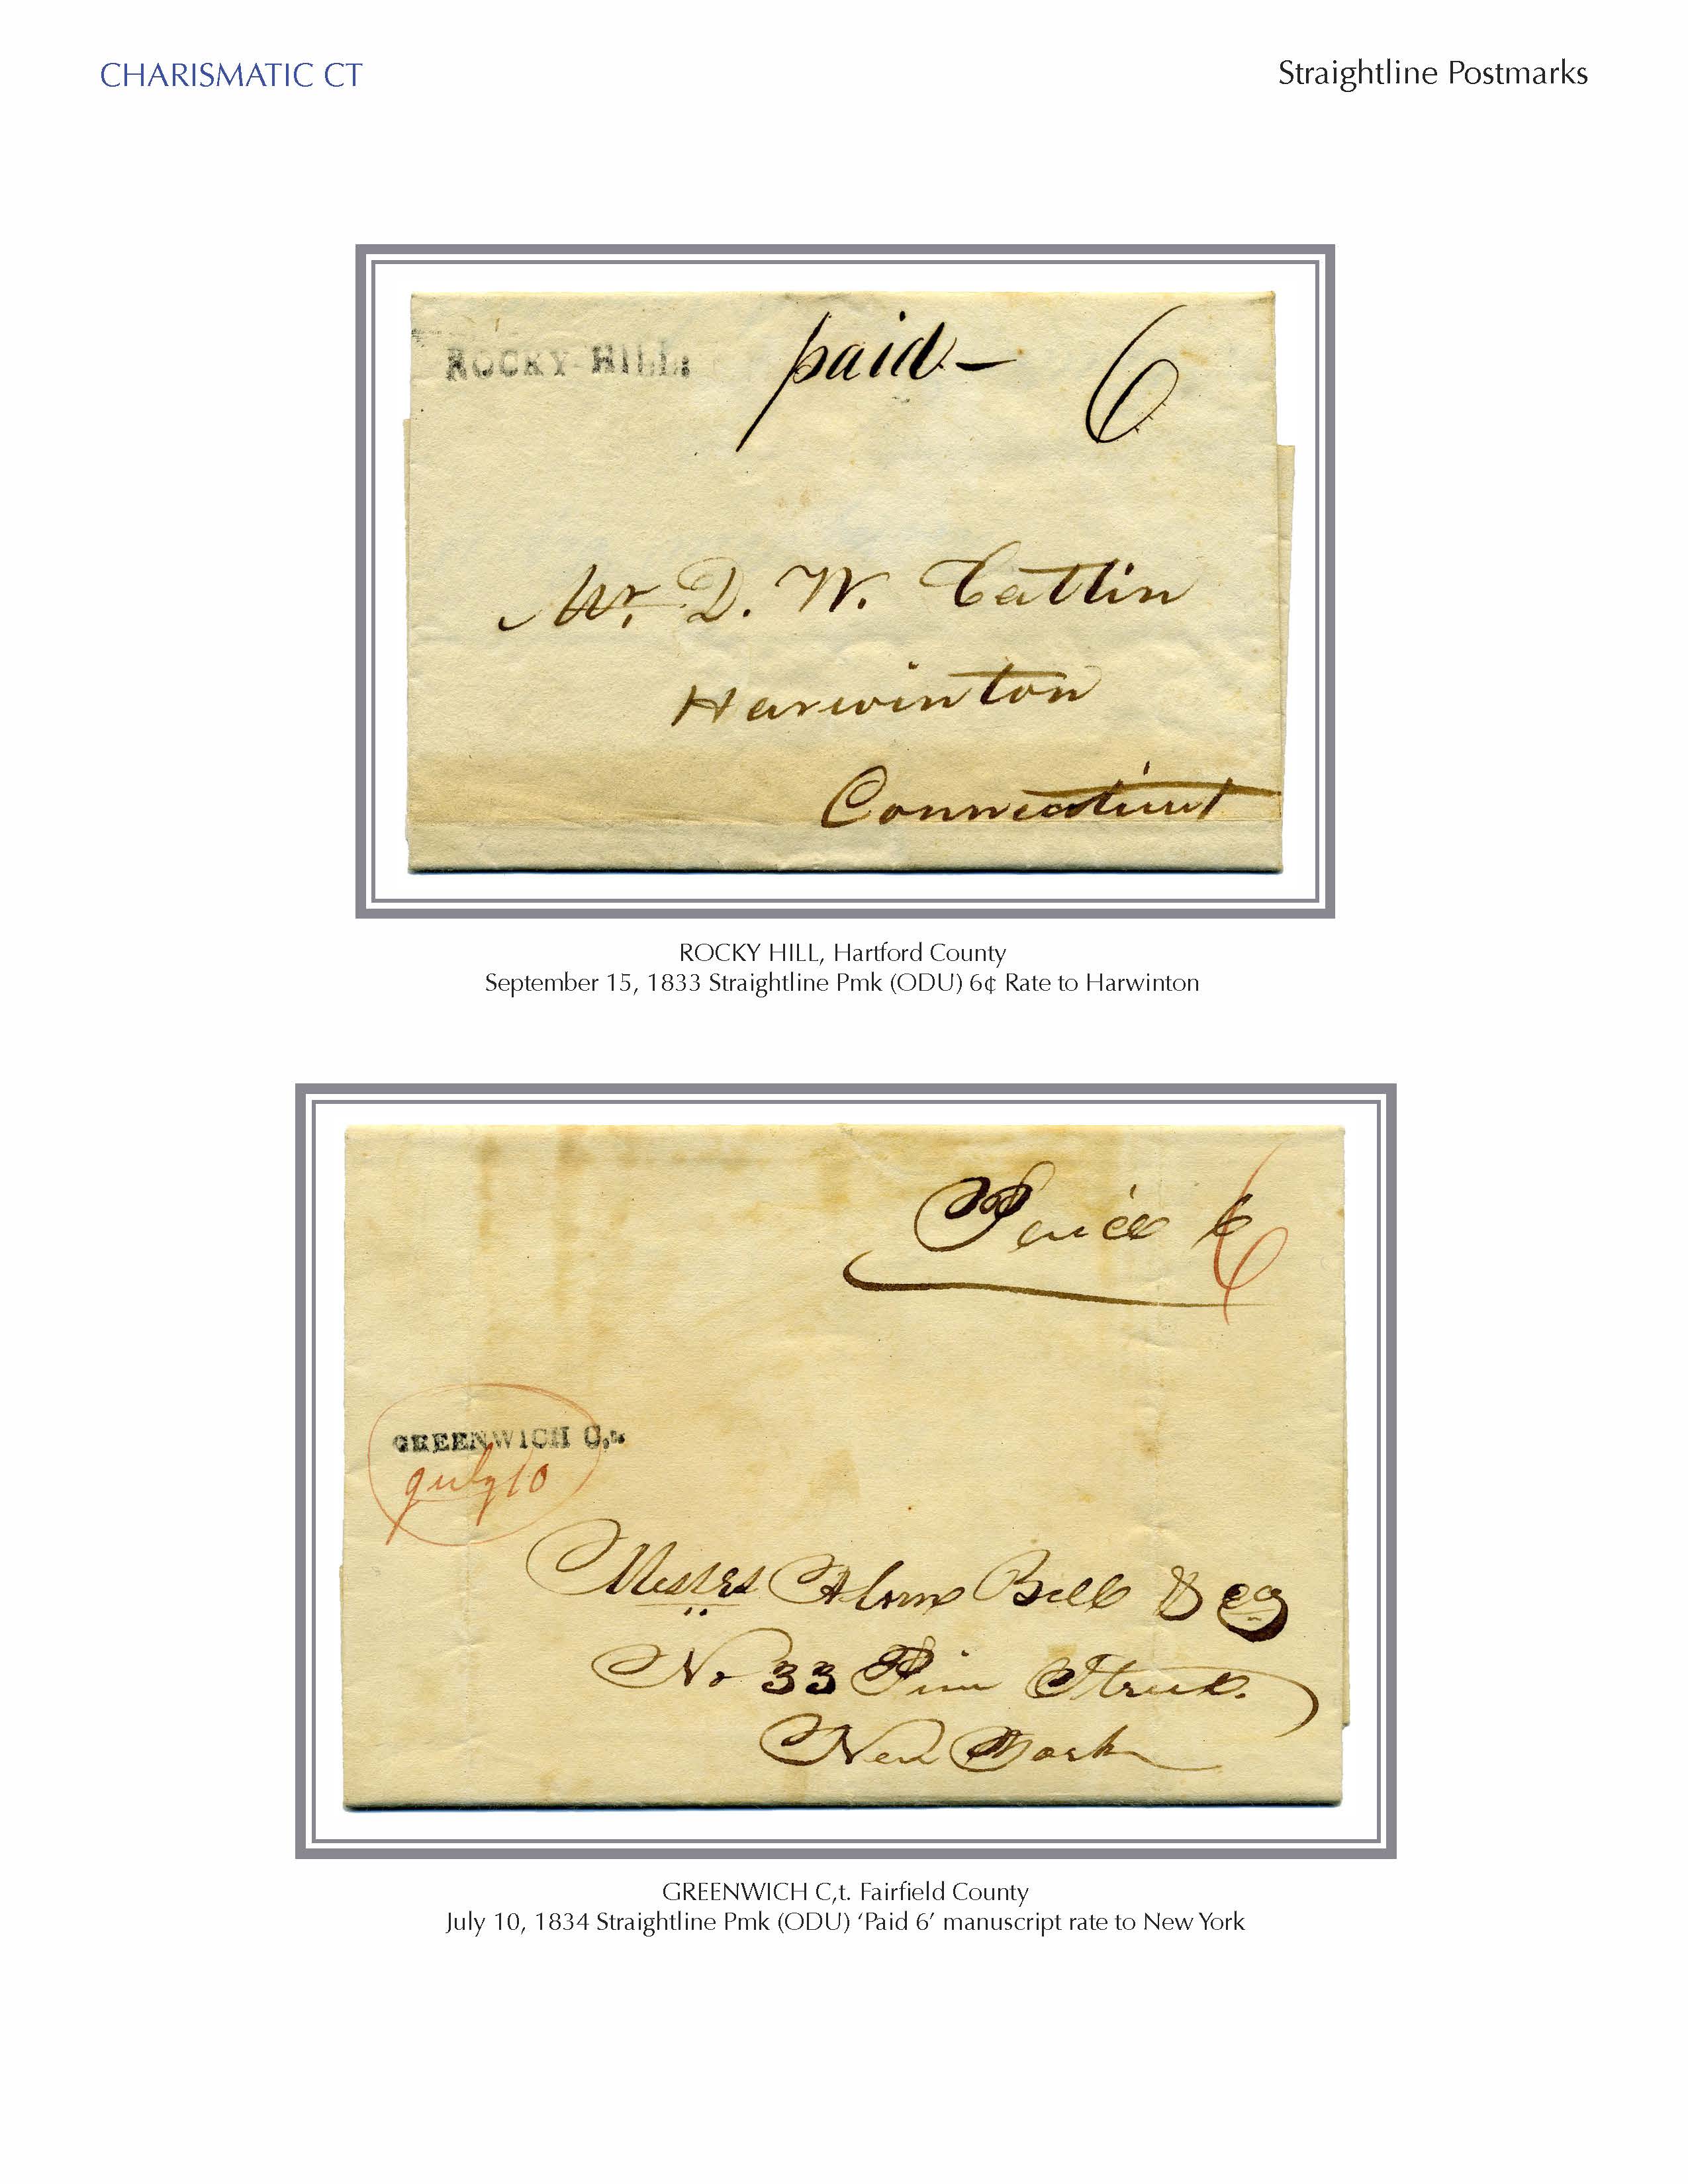 CHARISMATIC CT
Straightline Postmarks
ROCKY HILL:
paid - 6
Mr. D. W. Catlin
Harwinton
Connecticut
ROCKY HILL, Hartford County
September 15, 1833 Straightline Pmk (ODU) 6¢ Rate to Harwinton
Paid 6
6
GREENWICH C,t.
July 10
Messrs Bell & Co
No 33 Pine Street.
New York
GREENWICH C,t. Fairfield County
July 10, 1834 Straightline Pmk (ODU) ‘Paid 6’ manuscript rate to New York